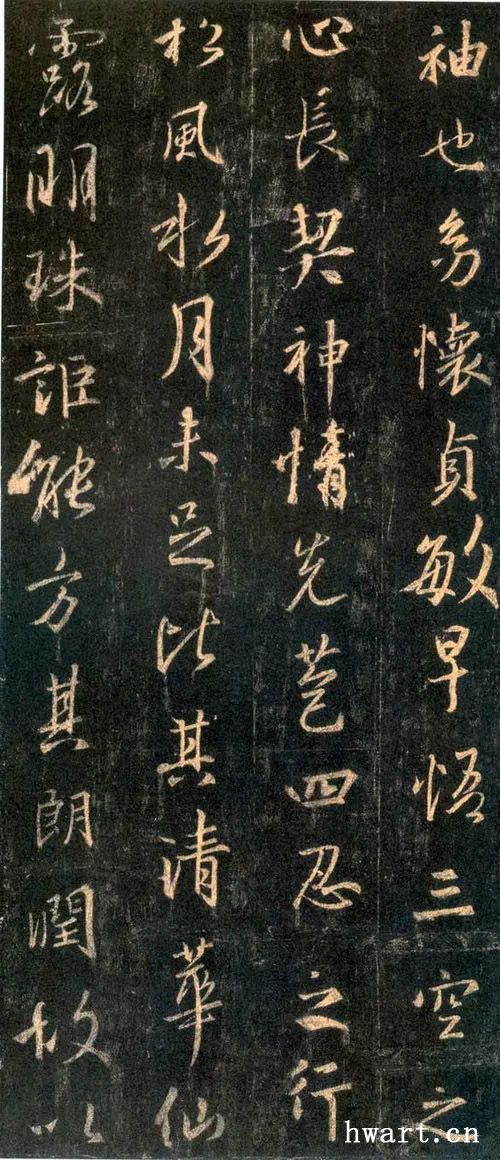 袖也㓜懷貞敏早悟三空之
心長契神情先苞四忍之行
松風水月未足比其清華仙
露明珠詎能方其朗潤故以
hwart.cn